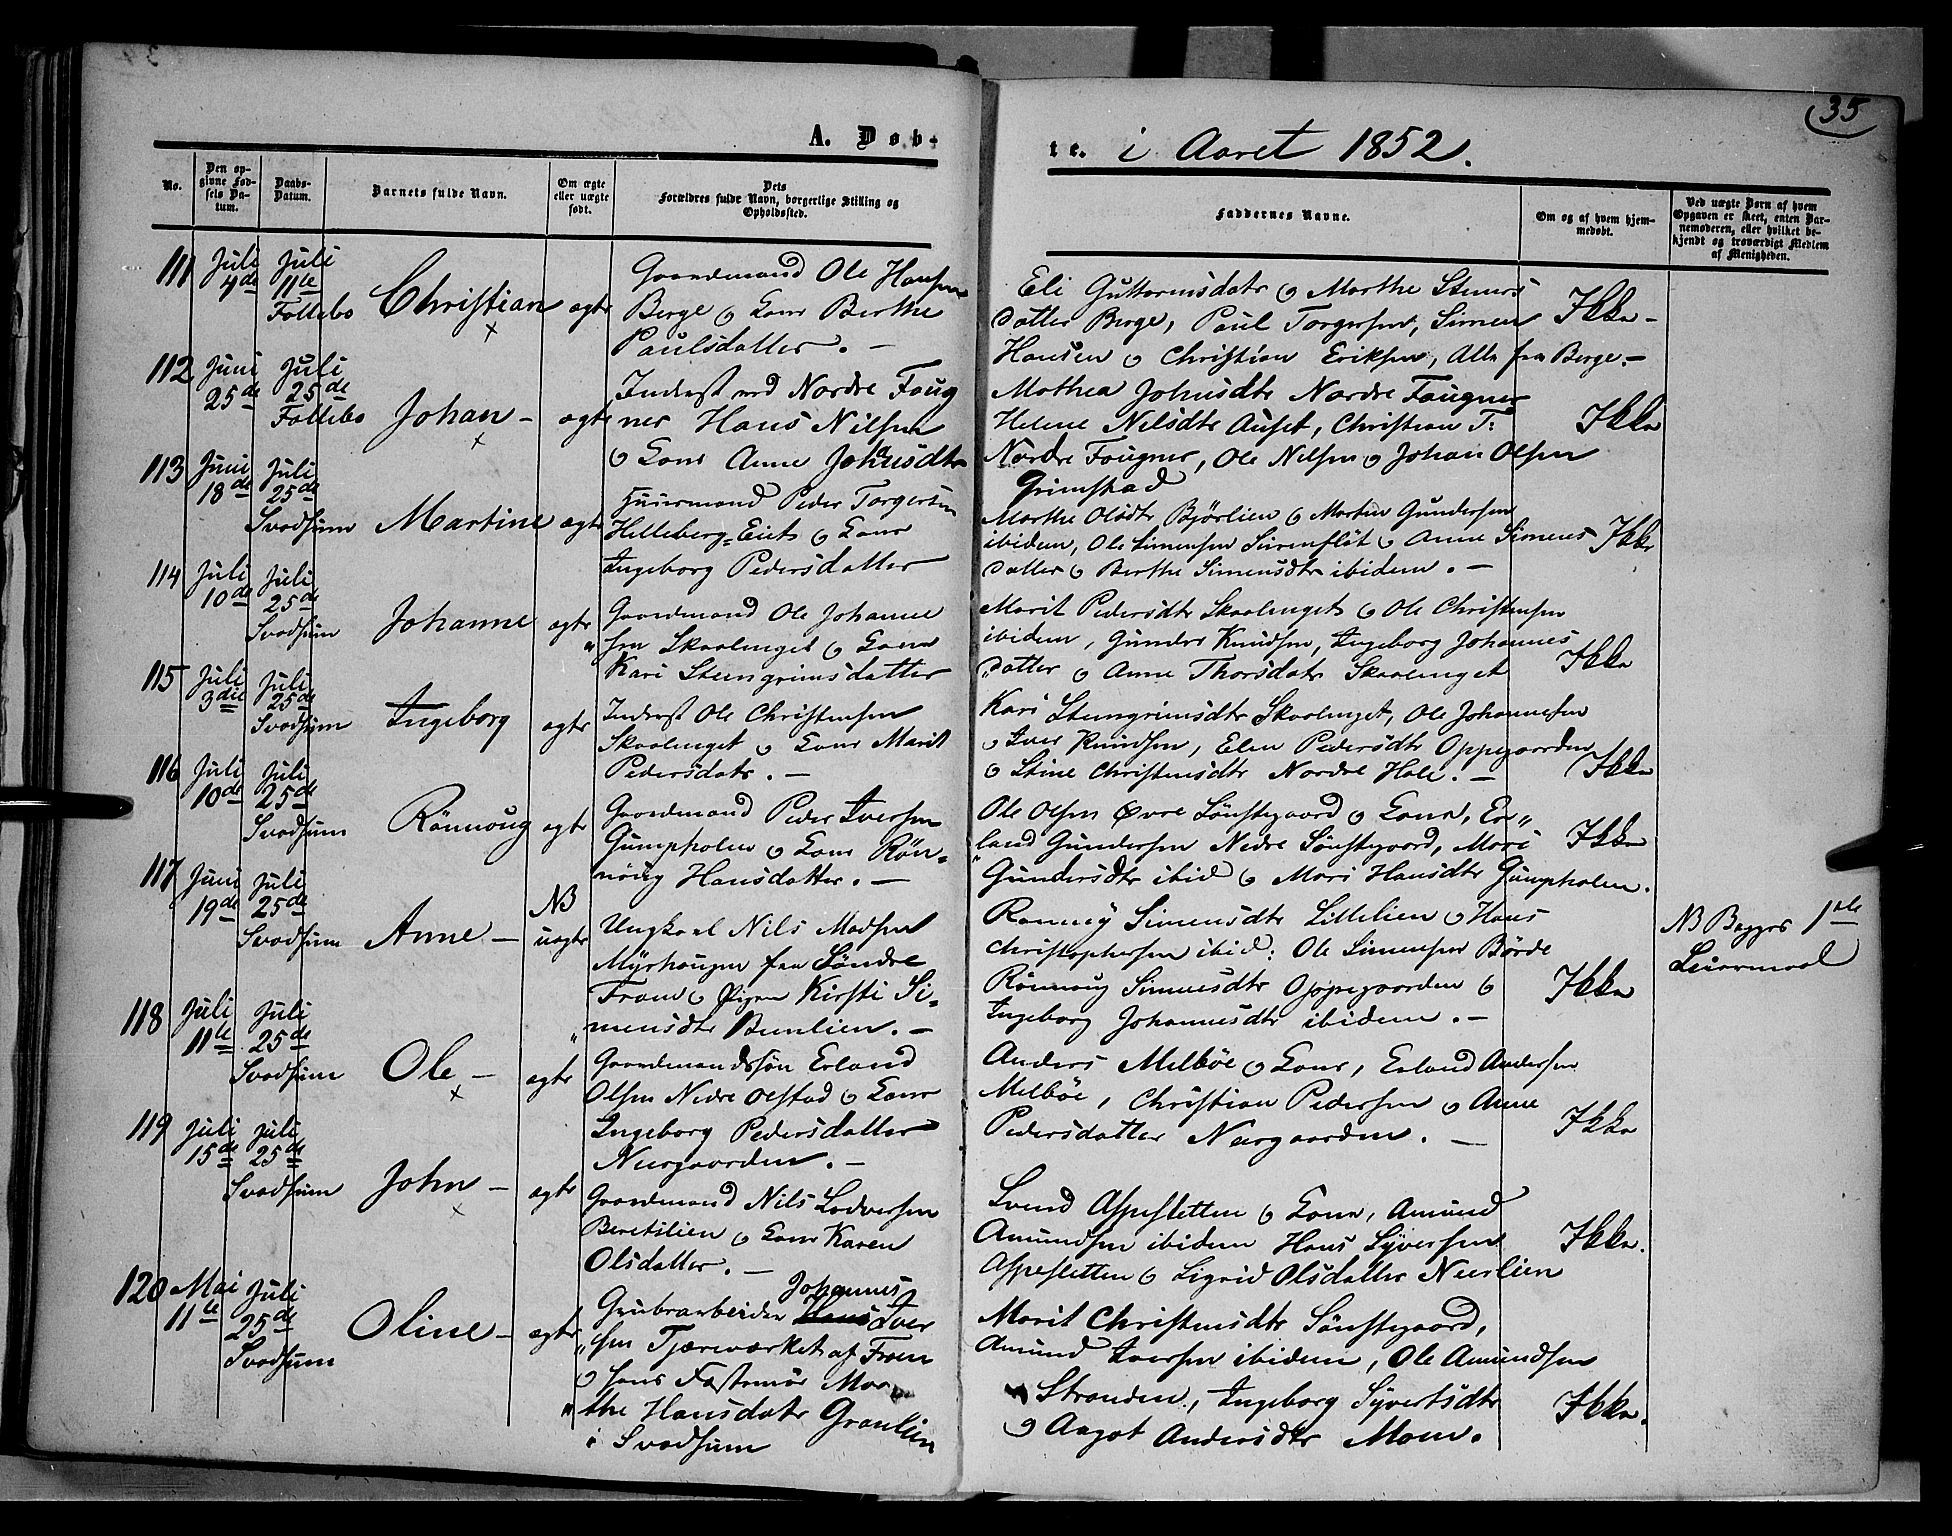 35
A. Døb-
te. i Aaret 1852.
No.
Den op-
givne Fød-
sels Da-
tum.
Daabs-
Datum.
Barnets fulde Navn.
Om ægte
eller uægte
født.
Dets
Forældres fulde Navn, borgerlige Stilling og
Opholdssted.
Faddernes Navne.
Om og af hvem hjem-
medøbt.
Ved uægte Børn af hvem
Opgaven er skeet, enten Bar-
nemoderen, eller hvilket be-
kjendt og troværdigt Medlem
af Menigheden.
111 Juli 4de Juli 11te Follebo Christian ægte
Gaardmand Ole Hansen
Berge og Kone Berthe
Paulsdatter. —
Eli Guttormsdatr og Marthe Steners
datter Berge, Paul Torgersen, Simen
Hansen og Christian Eriksen, Alle fra Berge. —
Ikke —
112 Juni 25de Juli 25de Follebo Johan — ægte
Inderst ved Nordre Foug
ner Hans Nilsen
og Kone Anne Johnsdtr
Mathea Johnsdtr Nordre Fougner
Helene Nilsdtr Auset, Christian T:
Nordre Fougner, Ole Nilsen og Johan Olsen
Grimstad
Ikke
113 Juni 18de Juli 25de Svadsum Martine ægte
Huusmand Peder Torgersen
Helleberg-Eiet og Kone
Ingeborg Pedersdatter
Marthe Olsdtr Bjørlien og Martin Gundersen
ibidem, Ole Simensen og Anne Simens
datter og Berthe Simensdtr ibidem. —
Ikke
114 Juli 10de Juli 25de Svadsum Johanne ægte
Gaardmand Ole Johanne
sen Skaalenget og Kone
Kari Steengrimsdatter
Marit Pedersdtr Skaalenget og Ole Christensen
ibidem, Gunder Knudsen, Ingeborg Johannes
datter og Anne Thorsdatr Skaalenget
Ikke
115 Juli 3die Juli 25de Svadsum Ingeborg ægte
Inderst Ole Christensen
Skaalenget og Kone Marit
Pedersdatr. —
Kari Steengrimsdtr Skaalenget, Ole Johannesen
og Iver Knudsen, Elen Pedersdtr Oppegaarden
og Stine Christensdtr Nordre Hole. —
Ikke
116 Juli 10de Juli 25de Svadsum Rønnoug ægte
Gaardmand Peder Iversen
Gumpholen og Kone Røn-
noug Hansdatter. —
Ole Olsen Øvre Sønstegaard og Kone, Er
land Gundersen Nedre Sønstegaard, Mari
Gundersdtr ibid og Mari Hansdtr Gumpholen.
Ikke
117 Juni 19de Juli 25de Svadsum Anne — NB uægte
Ungkarl Nils Madsen
Myrhougen fra Søndre
Fron og Pigen Kirsti Si-
mensdtr Bunlien. —
Ronnoug Simensdtr Lillelien og Hans
Christophersen ibid: Ole Simensen Børde
Rönnoug Simensdtr Oppegaarden og
Ingeborg Johannesdtr ibidem. —
Ikke
NB Begges 1ste
Leiermaal
118 Juli 11te Juli 25de Svadsum Ole — ægte
Gaardmandssøn Erland
Olsen Nedre Olstad og Kone
Ingeborg Pedersdatter
Neergaarden. —
Anders Melbøe og Kone, Erland Andersen
Melbøe, Christian Pedersen og Anne
Pedersdatter Neergaarden. —
Ikke
119 Juli 15de Juli 25de Svadsum John — ægte
Gaardmand Nils Lodversen
Beretilien og Kone Karen
Olsdatter. —
Svend Aspesletten og Kone, Amund
Amundsen ibidem Hans Syversen
Aspesletten og Sigrid Olsdatter Neerlien
Ikke.
120 Mai 11te Juli 25de Svadsum Oline — ægte
Johannes
Grubearbeider Hans Iver
sen Tjæreværket af Fron
og hans Fæstemø Mar
the Hansdatr Granlien
i Svadsum
Marit Christensdtr Sønstegaard,
Amund Iversen ibidem, Ole Amundsen
Stranden, Ingeborg Syvertsdtr
og Aagot Andersdtr Moen.
Ikke.